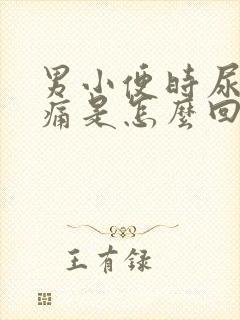 男小便时尿
痛是怎麼回
王有録